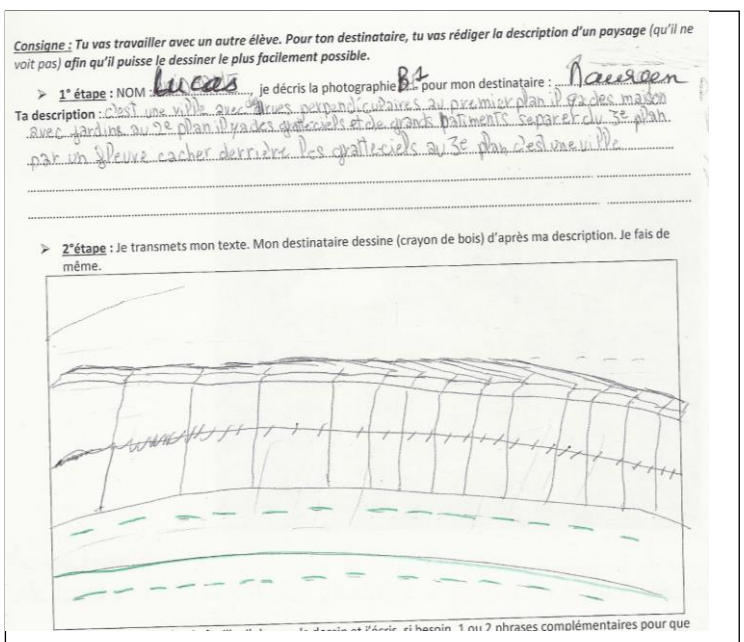 Consigne : Tu vas travailler avec un autre élève. Pour ton destinataire, tu vas rédiger la description d'un paysage (qu'il ne
voit pas) afin qu'il puisse le dessiner le plus facilement possible.
➤ 1° étape : NOM : Lucas, je décris la photographie B1 pour mon destinataire :
Ta description : c'est une ville avec rues perpendiculaires au premier plan il ya des maison
avec jardins au 2e plan il ya des gratteciels et de grands batiments separer du 3e plan
par un fleuve cacher derrière les gratteciels au 3e plan c'est une ville
➤ 2°étape : Je transmets mon texte. Mon destinataire dessine (crayon de bois) d'après ma description. Je fais de
même.
dessin et j'écris, si besoin, 1 ou 2 phrases complémentaires pour que